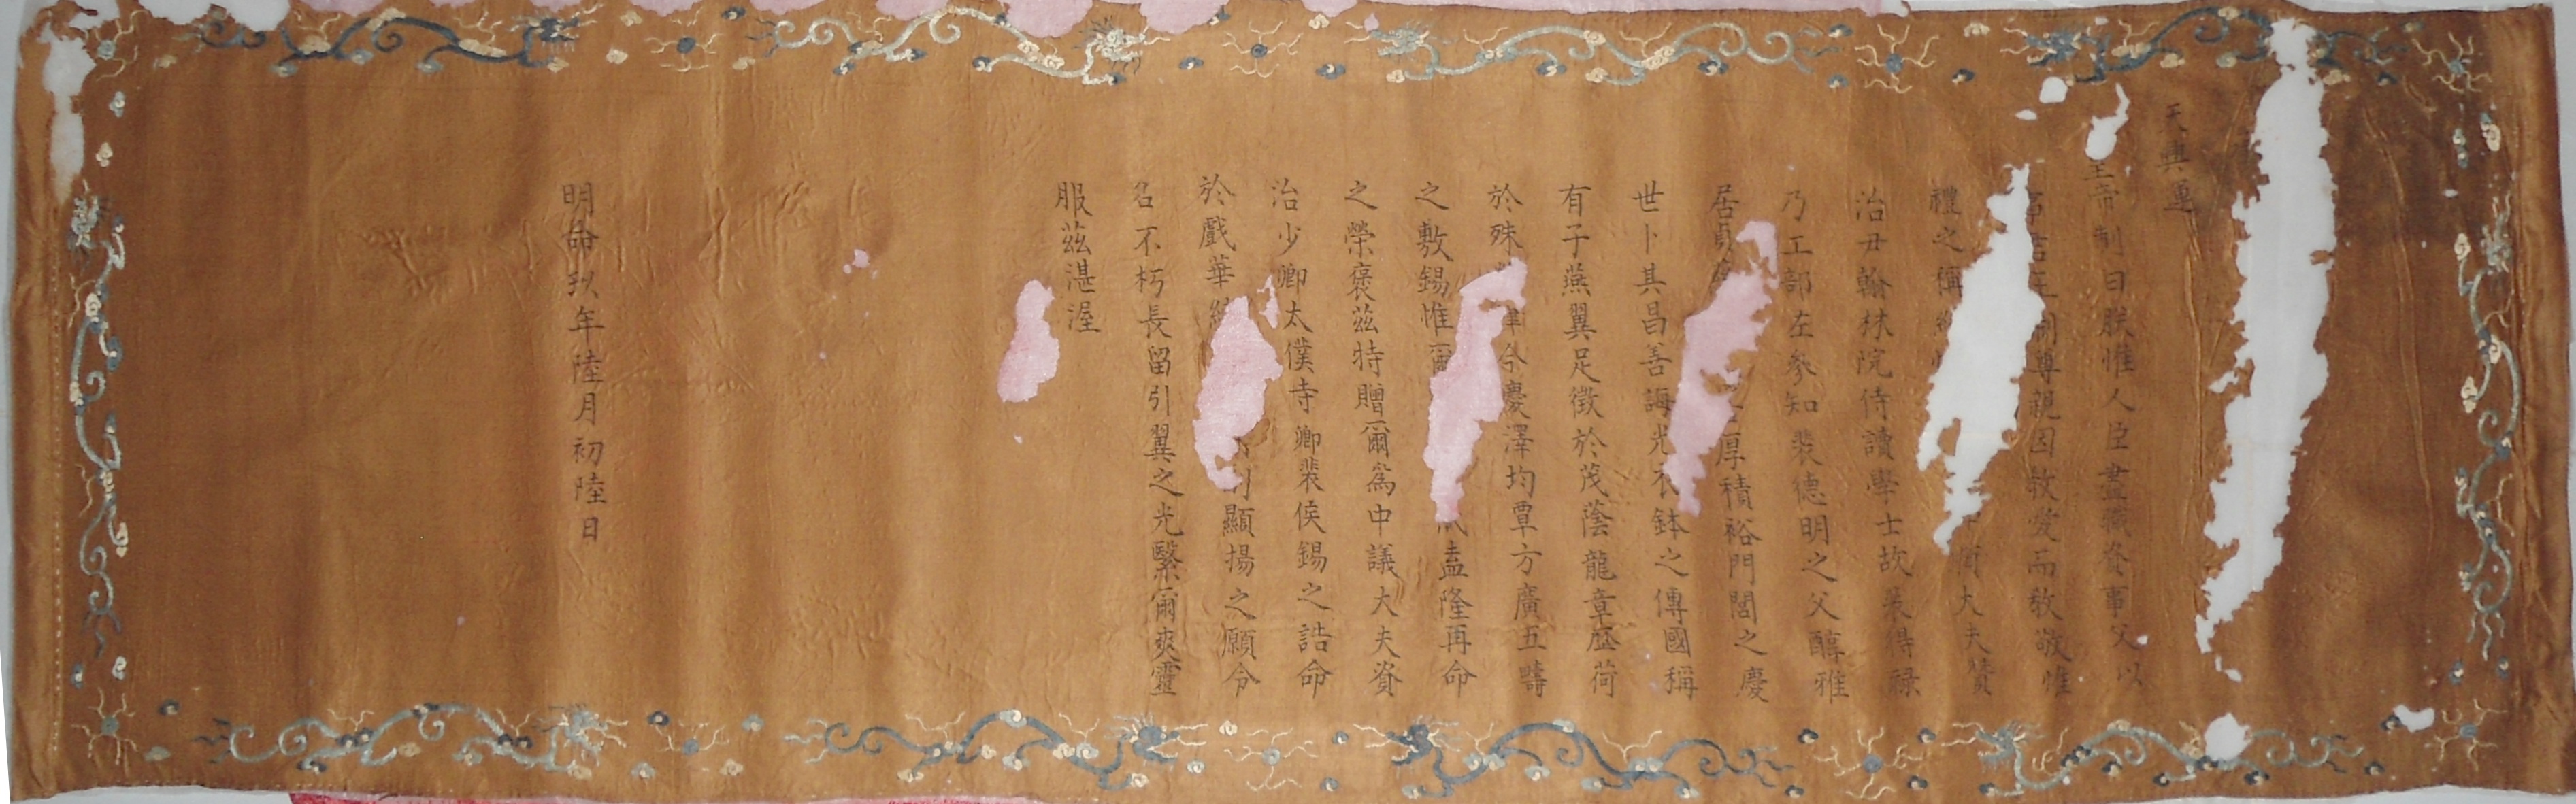 天興運
皇帝制曰朕惟人臣盡職資事父以
尊親因教愛而教敬惟
禮之稱 大夫贊
治尹翰林院侍讀學士故裴得祿
乃工部左參知裴德明之父醇雅
居貞 厚積裕門閭之慶
世卜其昌善誨光衣鉢之傳國稱
有子燕翼足徵於茂蔭龍章歷荷
於殊 今慶澤均覃方廣五疇
之敷錫惟爾 盍隆再命
之榮褒茲特贈爾為中議大夫資
治少卿太僕寺卿裴侯錫之誥命
於戲華 顯揚之願令
名不朽長留引翼之光繄爾爽靈
服茲湛渥
明命 年陸月初陸日